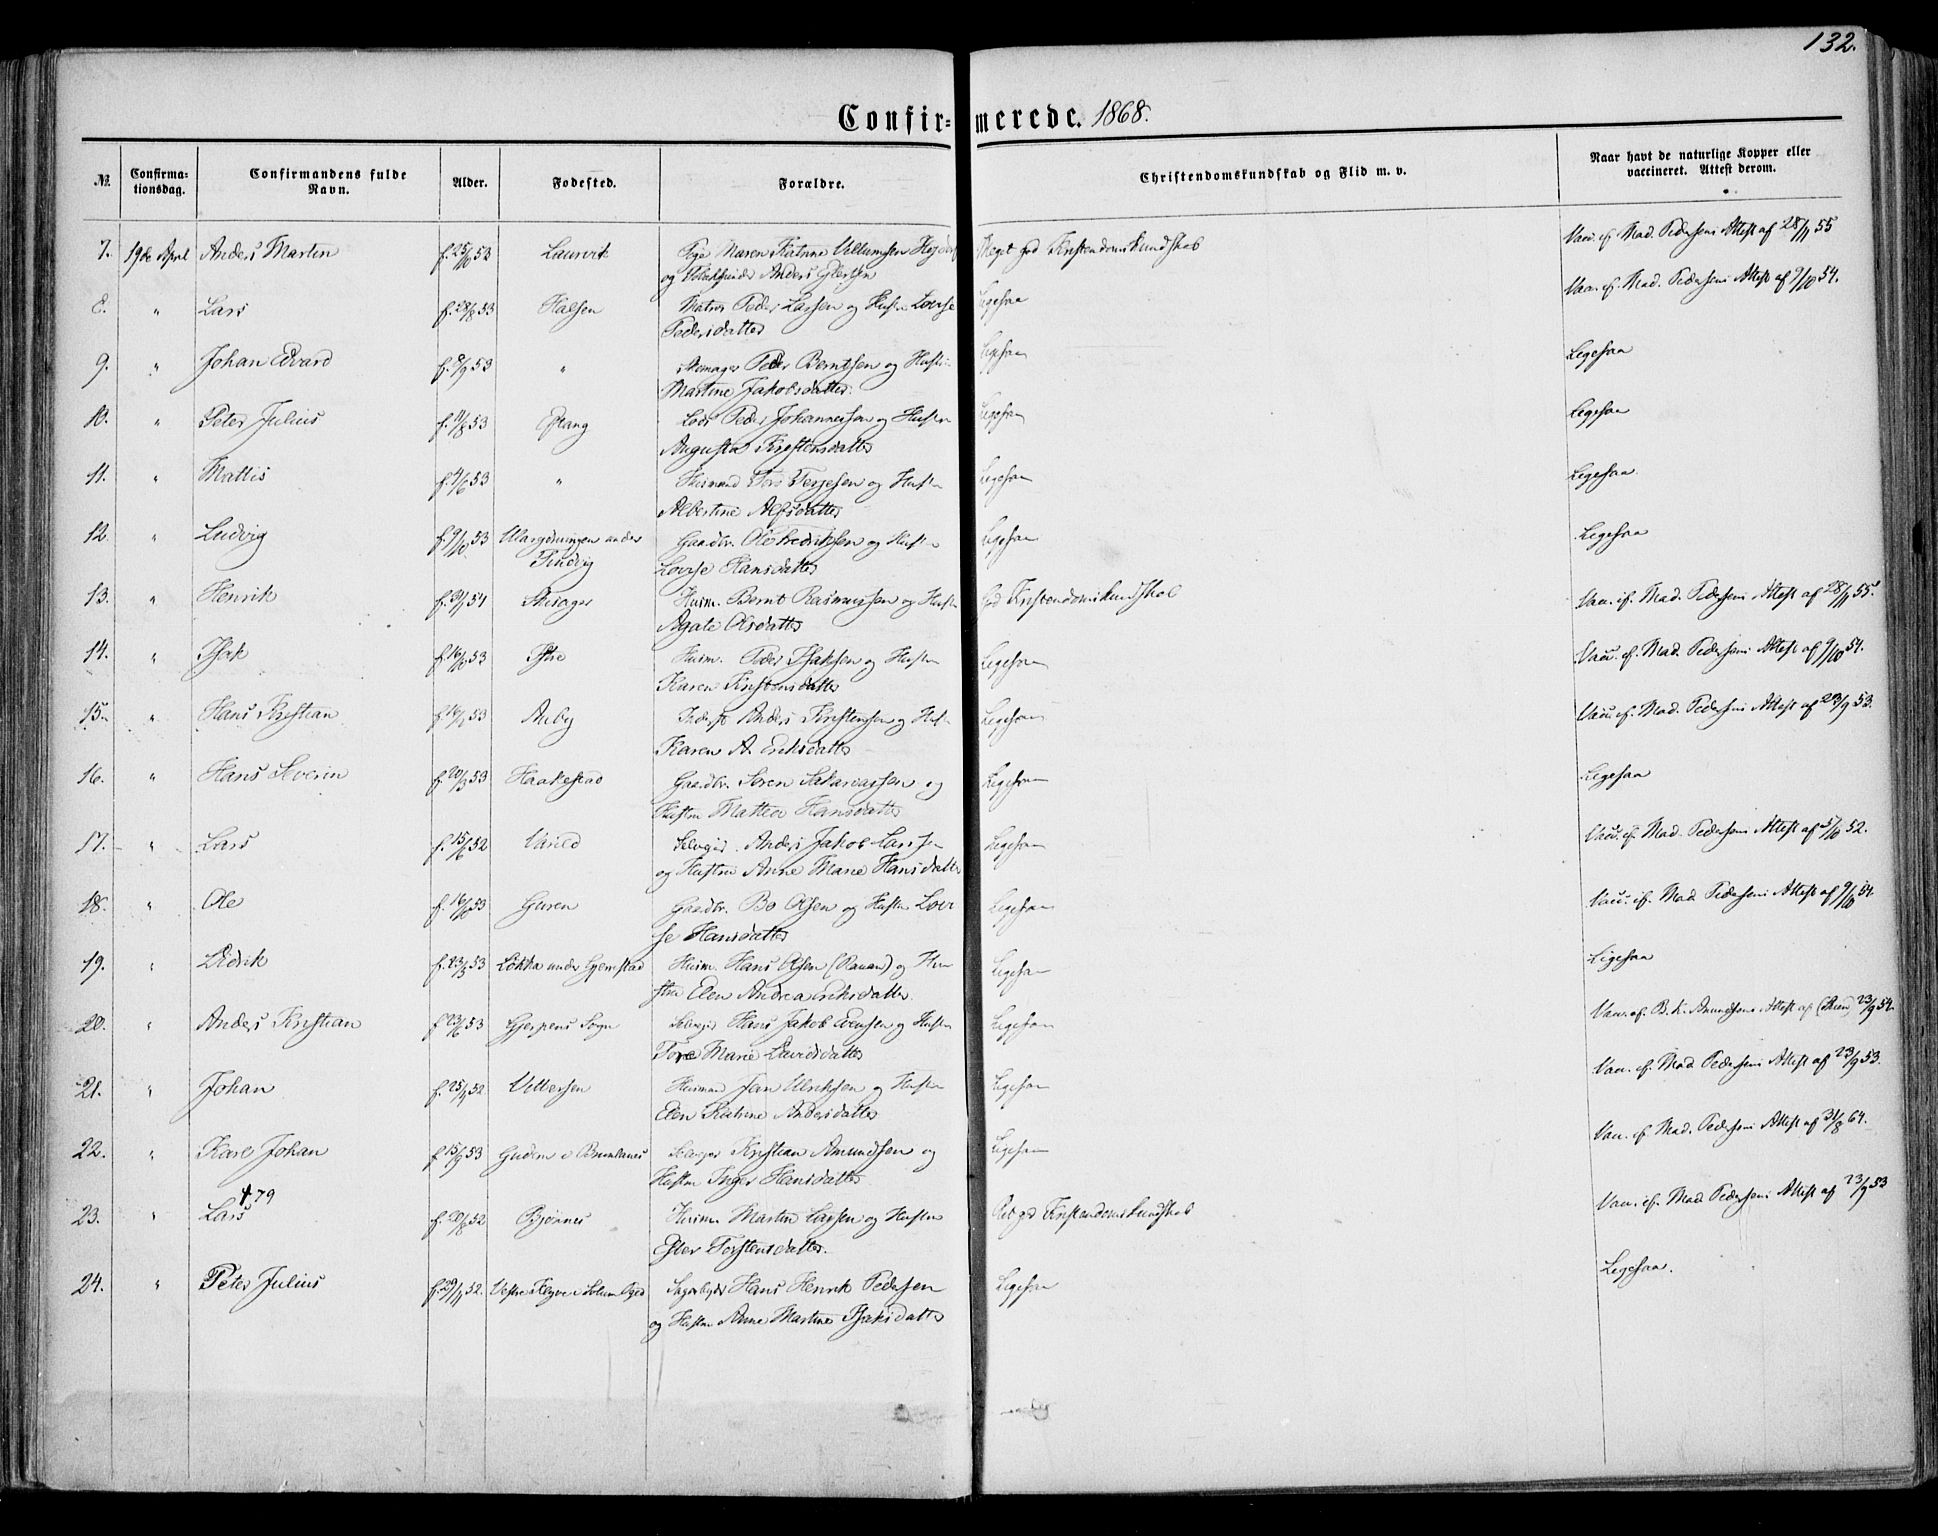 132.
Confir= merede. 1868.
No. Confirmationsdag. Confirmandens fulde Navn. Alder. Fødested. Forældre. Christendomskundskab og Flid m. v. Naar havt de naturlige Kopper eller vaccineret. Attest derom.
7. 19de April Anders Martin f. 25/10 53 Laurvik Pige Maren Katrine Villumsen og Anders Meget god Kristendomskundskab Vacc. ef. Mad. Pedersens Attest af 28/11 55
8. " Lars f. 28/8 53 Halsen Matros Peder Larsen og Hustru Lovise Pedersdatter Ligesaa Vacc. ef. Mad. Pedersens Attest af 9/10 54.
9. " Johan Edvard f. 8/9 53 " Skomager Peder Berntsen og Hustru Martine Jakobsdatter. Ligesaa Ligesaa
10. " Peter Julius f. 11/8 53 Østang Lods Peder Johannessen og Hustru Augusta Kristensdatter Ligesaa Ligesaa
11. " Mattis f. 4/6 53 " Husmand Tore Terjesen og Hustru Albertine Alfsdatter Ligesaa Ligesaa.
12. " Ludvig f. 9/10 53 under Gaardbr. Ole Fredriksen og Hustru Lovise Hansdatter Ligesaa Ligesaa
13. " Henrik f. 3/1 54 Skisager Husm. Bernt Rasmussen og Hustru Agate Olsdatter God Kristendomskundskab Vacc. ef. Mad. Pedersens Attest af 28/11 55.
14. " Isak f. 16/10 53 Husm. Peder Isaksen og Hustru Karen Kristensdatter Ligesaa Vacc. ef. Mad. Pedersens Attest af 9/10 54.
15. " Hans Kristian f. 16/1 53 Auby Inderst Anders Kristensen og Hustru Karen A. Eriksdatter Ligesaa Vacc. ef. Mad. Pedersens Attest af 23/9 53.
16. " Hans Severin f. 20/3 53 Haakestad Gaardbr. Søren Sakariassen og Hustru Mattea Hansdatter Ligesaa Ligesaa
17. " Lars f. 15/6 52 Varild Selveier Anders Jakob Larssen og Hustru Anne Marie Hansdatter Ligesaa Vacc. ef. Mad. Pedersens Attest af 5/10 52.
18. " Ole f. 16/10 53 Guren Gaardbr. Bo Olsen og Hustru Lovise Hansdatter Ligesaa Vacc. ef. Mad. Pedersens Attest af 9/10 54.
19. " Didrik f. 23/8 53 Løkka under Gjerstad Husm. Hans Olsen (Ravan) og Hustru Elen Andrea Eriksdatter. Ligesaa Ligesaa
20. " Anders Kristian f. 23/6 53 Gjerpens Sogn Selveier Hans Jakob Evensen og Hustru Tore Marie Davidsdatter Ligesaa Vacc. ef. B. K. Amundsens Attest af (Skien) 23/9 54.
21. " Johan f. 25/11 52 Vettersen Husmand Jan Ulriksen og Hustru Elen Katrine Andersdatter Ligesaa Vacc. ef. Mad. Pedersens Attest af 23/9 53.
22. " Karl Johan f. 15/9 53 Gudem i Brunlanes Selveier Kristian Amundsen og Hustru Inger Hansdatter. Ligesaa Vacc. ef. Mad. Pedersens Attest af 31/8 64.
† 79
23. " Lars f. 20/8 52 Bjønnes Husm. Martin Larsen og Hustru Ester Torstensdatter. Ret god Kristendomskundskab Vacc. ef. Mad. Pedersens Attest af 23/9 53
24. " Peter Julius f. 29/11 52. Vestre Kleyve i Solum Pgd Hans Henrik Pedersen og Hustru Anne Martine Isaksdatter Ligesaa Ligesaa.